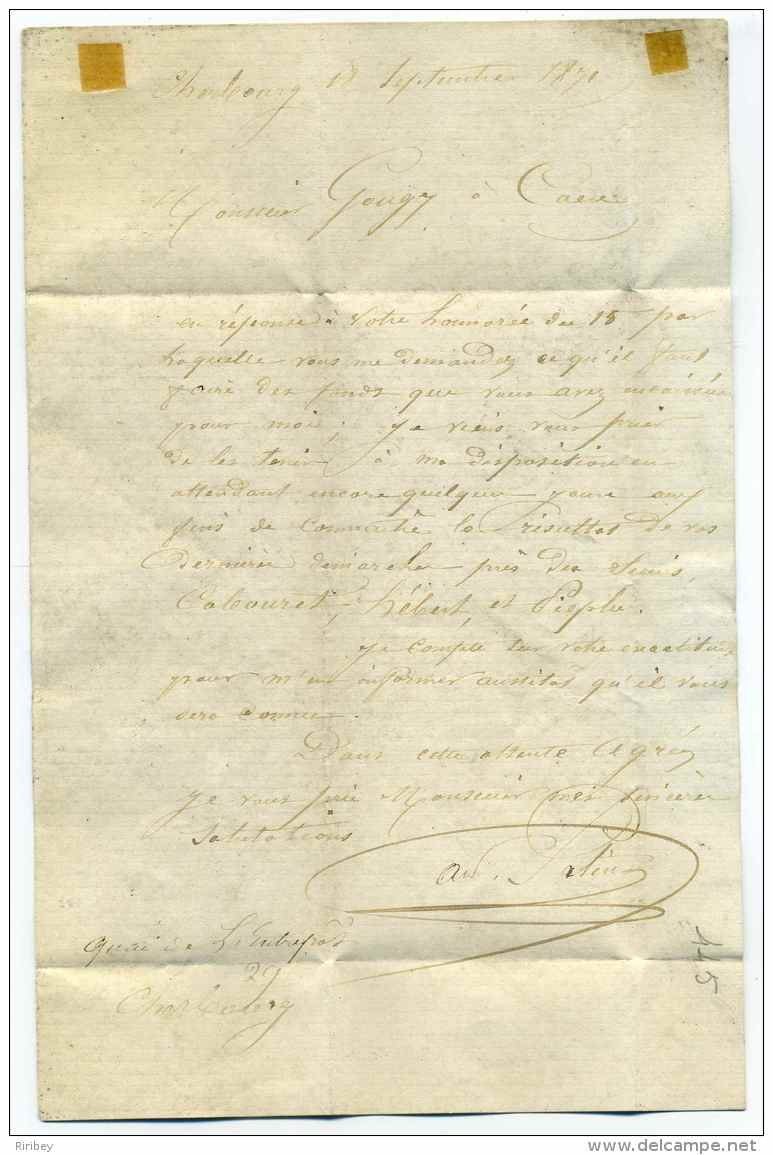 Cherbourg 18 Septembre 1870
Monsieur Gougy à Caen
en réponse à votre honnorée du 15 par
laquelle vous me demandez ce qu'il faut
faire des fonds que vous avez encaissés
pour moi; je viens vous prier
de les tenir à ma disposition en
attendant encore quelques jours aux
fins de connaitre le résultat de vos
dernières démarches près des Sieurs,
Cabouret, Hébert, et Pieplu.
Je compte sur votre exactitude
pour m'en informer aussitot qu'il vous
sera connu.
Dans cette attente Agréez
je vous prie Monsieur mes sincères
salutations
Quai de L'Entrepôt
29
Cherbourg
145
Riribey
delcampe.net